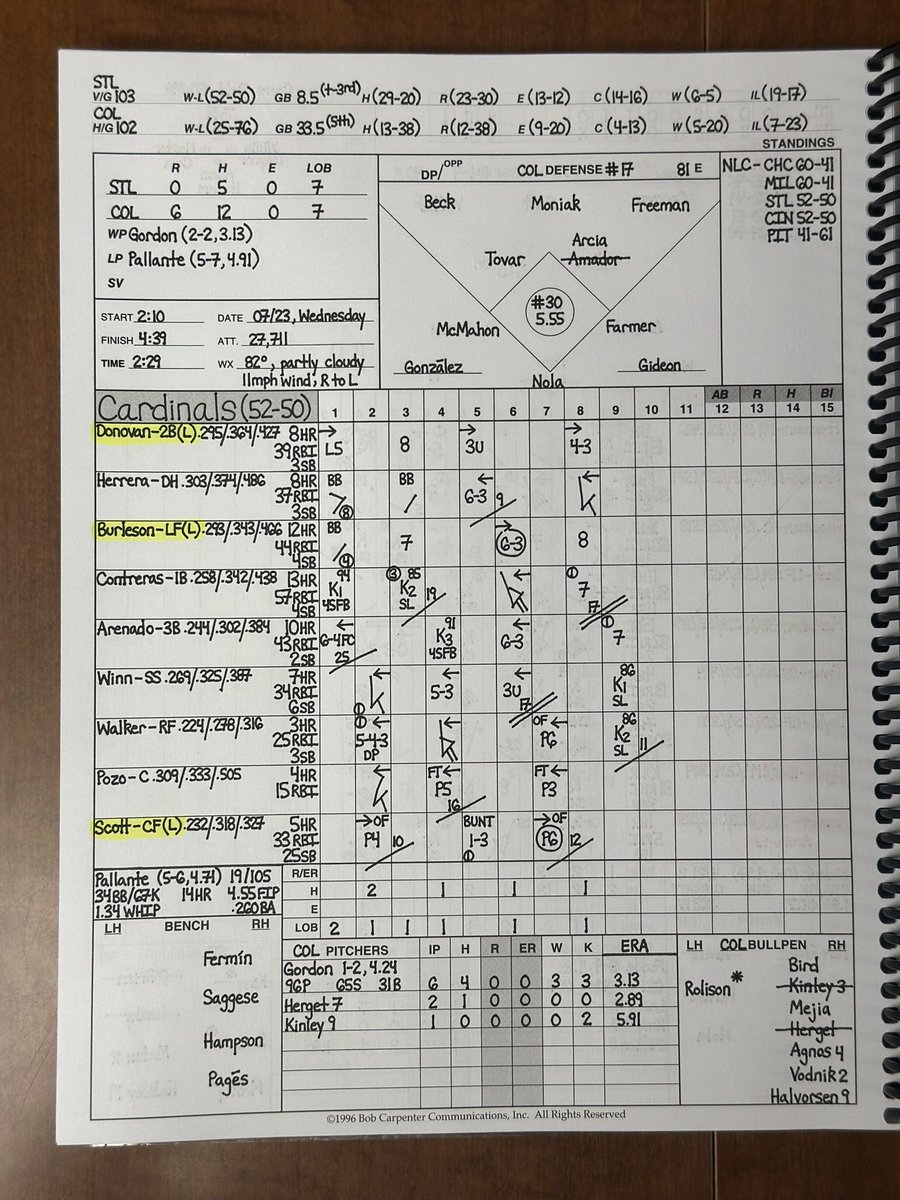 STL
V/G 103 W-L (52-50) GB 8.5 (t-3rd) H (29-20) R (23-30) E (13-12) C (14-16) W (6-5) IL (19-17)
COL
H/G 102 W-L (25-76) GB 33.5 (5th) H (13-38) R (12-38) E (9-20) C (4-13) W (5-20) IL (7-23)
STANDINGS
R H E LOB
STL 0 5 0 7
COL 6 12 0 7
WP Gordon (2-2, 3.13)
LP Pallante (5-7, 4.91)
SV
START 2:10 DATE 07/23, Wednesday
FINISH 4:39 ATT. 27,711
TIME 2:29 WX 82°, partly cloudy
11mph wind, R to L
DP/OPP COL DEFENSE #17 81 E
Beck Moniak Freeman
Arcia
Tovar Amador
#30
5.55
McMahon Farmer
González Gideon
Nola
NLC - CHC 60-41
MIL 60-41
STL 52-50
CIN 52-50
PIT 41-61
Cardinals (52-50) 1 2 3 4 5 6 7 8 9 10 11 12 13 14 15
AB R H BI
Donovan-2B(L) .295/.364/.427 8HR
39RBI
3SB
L5 8 3U 4-3
Herrera-DH .303/.374/.486 8HR
37RBI
3SB
BB 8 BB 6-3 9 K
Burleson-LF(L) .293/.343/.466 12HR
44RBI
4SB
BB 9 7 6-3 8
Contreras-1B .258/.342/.438 13HR
57RBI
4SB
94 K1 4SFB 3 85 K2 SL 19 K 1 7 17
Arenado-3B .244/.302/.384 10HR
40RBI
2SB
6-4FC 25 91 K3 4SFB 6-3 1 7
Winn-SS .269/.325/.387 7HR
34RBI
6SB
1 5-3 3U 17 86 K1 SL
Walker-RF .224/.278/.316 3HR
25RBI
3SB
1 5-4-3 DP OF P6 86 K2 SL 11
Pozo-C .309/.333/.505 4HR
15RBI
FT P5 16 FT P3
Scott-CF(L) .232/.318/.327 5HR
33RBI
25SB
OF P4 10 BUNT 1-3 1 OF P6 12
Pallante (5-6, 4.71) 19/105
34BB/67K 14HR 4.55FIP
1.34 WHIP .260BA
R/ER
H 2 1 1 1
E
LOB 2 1 1 1 1 1
LH BENCH RH
Fermín
Saggese
Hampson
Pagés
COL PITCHERS IP H R ER W K ERA
Gordon 1-2, 4.24
9GP GS5 31B 6 4 0 0 3 3 3.13
Herget 7 2 1 0 0 0 0 2.89
Kinley 9 1 0 0 0 0 2 5.91
LH COL BULLPEN RH
Bird
Rolison * Kinley 3
Mejia
Herget
Agnos 4
Vodnik 2
Halvorsen 9
©1996 Bob Carpenter Communications, Inc. All Rights Reserved